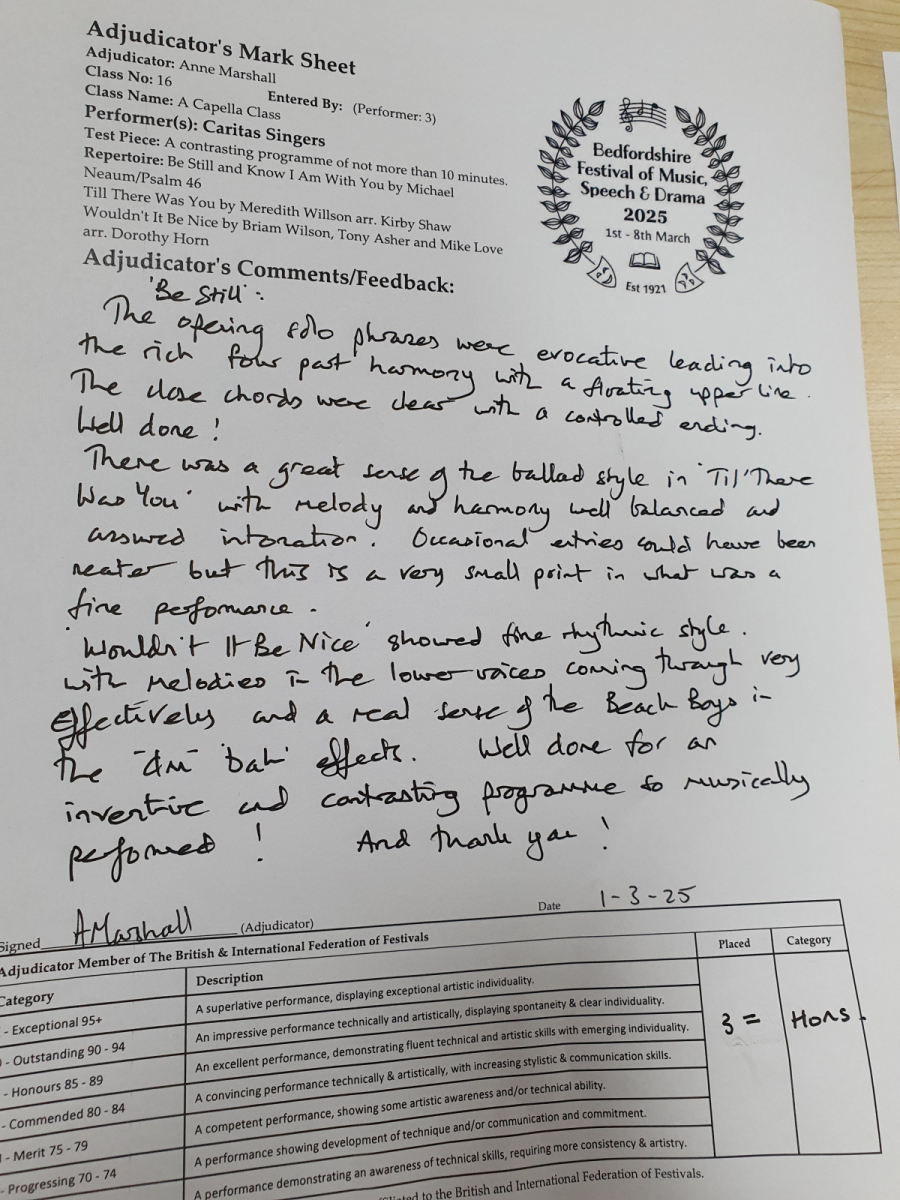 Adjudicator's Mark Sheet
Adjudicator: Anne Marshall
Class No: 16
Entered By: (Performer: 3)
Class Name: A Capella Class
Performer(s): Caritas Singers
Test Piece: A contrasting programme of not more than 10 minutes.
Repertoire: Be Still and Know I Am With You by Michael
Neaum/Psalm 46
Till There Was You by Meredith Willson arr. Kirby Shaw
Wouldn't It Be Nice by Briam Wilson, Tony Asher and Mike Love
arr. Dorothy Horn
Bedfordshire
Festival of Music,
Speech & Drama
2025
1st - 8th March
Est 1921
Adjudicator's Comments/Feedback:
'Be Still':
The opening solo phrases were evocative leading into
the rich four part harmony with a floating upper line.
The close chords were clear with a controlled ending.
Well done!
There was a great sense of the ballad style in 'Til There
Was You' with melody and harmony well balanced and
assured intonation. Occasional entries could have been
neater but this is a very small point in what was a
fine performance.
'Wouldn't It Be Nice' showed fine rhythmic style.
with melodies in the lower voices coming through very
effectively and a real sense of the Beach Boys in
the "dm" 'bah' effects. Well done for an
inventive and contrasting programme so musically
performed! And thank you!
Signed AMarshall (Adjudicator)
Date 1-3-25
Adjudicator Member of The British & International Federation of Festivals
Placed
Category
Category
Description
- Exceptional 95+
A superlative performance, displaying exceptional artistic individuality.
- Outstanding 90 - 94
An impressive performance technically and artistically, displaying spontaneity & clear individuality.
- Honours 85 - 89
An excellent performance, demonstrating fluent technical and artistic skills with emerging individuality.
- Commended 80 - 84
A convincing performance technically & artistically, with increasing stylistic & communication skills.
- Merit 75 - 79
A competent performance, showing some artistic awareness and/or technical ability.
- Progressing 70 - 74
A performance showing development of technique and/or communication and commitment.
A performance demonstrating an awareness of technical skills, requiring more consistency & artistry.
3 =
Hons.
to the British and International Federation of Festivals.